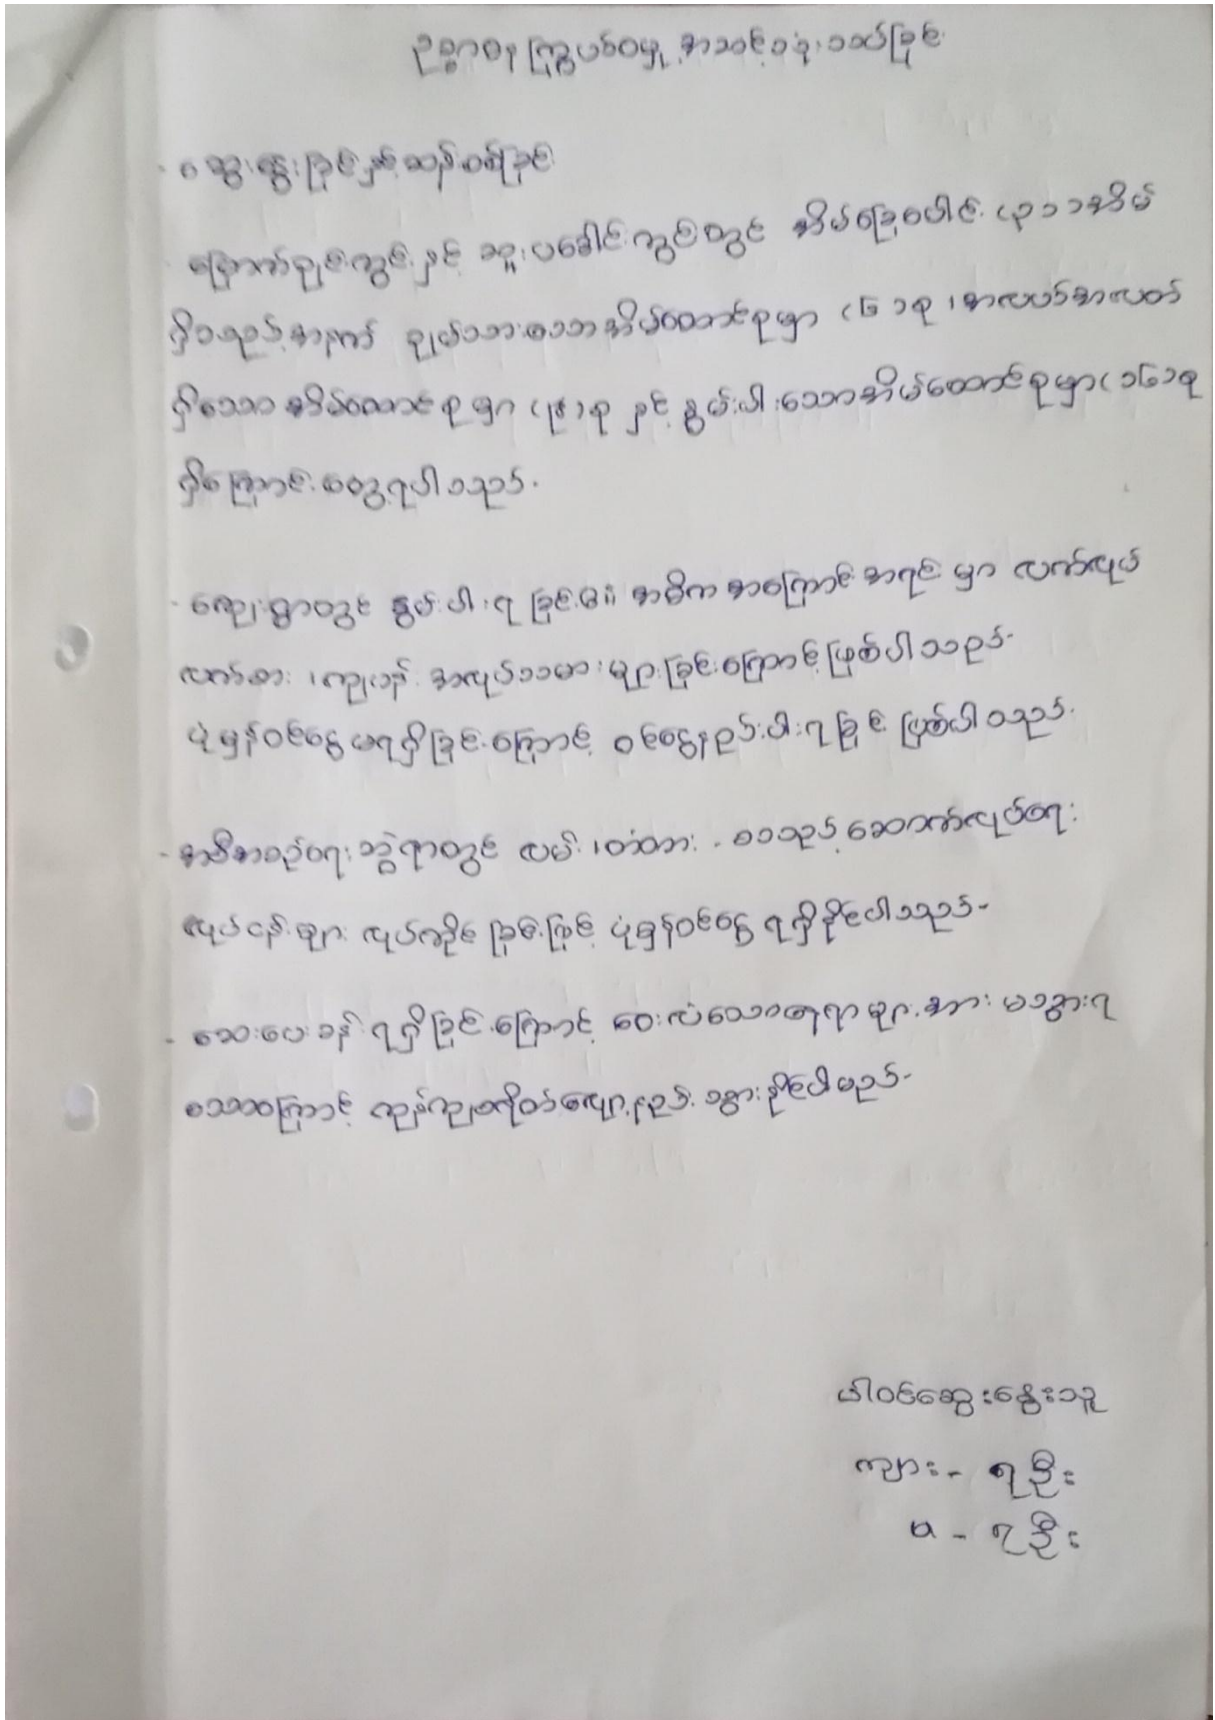 ဥစ္စာဓန ကြွယ်ဝမှု အဆင့်ခွဲခြားသတ်မှတ်ခြင်း
- ဆွေးနွေးခြင်းနှင့်ဆန်းစစ်ခြင်း
မြောက်ချဉ်းကွင်းနှင့် ဆူးပခေါင်းကွင်းတွင် အိမ်ခြေပေါင်း (၃၁)အိမ်
ရှိသည့်အနက် ချမ်းသာသောအိမ်ထောင်စုမှာ (၆)စု၊ အလယ်အလတ်
ရှိသော အိမ်ထောင်စုမှာ (၉)စု နှင့် နွမ်းပါးသောအိမ်ထောင်စုမှာ(၁၆)စု
ရှိကြောင်းတွေ့ရပါသည်.
- ကျေးရွာတွင် နွမ်းပါးရခြင်း၏ အဓိကအကြောင်းအရင်းမှာ လက်လုပ်
လက်စား၊ ကျပန်း အလုပ်သမားများခြင်းကြောင့်ဖြစ်ပါသည်.
ပုံမှန်ဝင်ငွေ မရရှိခြင်းကြောင့် ဝင်ငွေနည်းပါးရခြင်း ဖြစ်ပါသည်.
- အစီအစဉ်ရေးဆွဲရာတွင် လမ်း၊ တံတား စသည့်ဆောက်လုပ်ရေး
လုပ်ငန်းများ လုပ်ကိုင်ခြင်းဖြင့် ပုံမှန်ဝင်ငွေ ရရှိနိုင်ပါသည်-
- ဆေးပေးခန်း ရရှိခြင်းကြောင့် ဝေးလံသောနေရာများအား မသွားရ
သောကြောင့် ကုန်ကျစရိတ်လျော့နည်း သွားနိုင်ပါမည်-
ပါဝင်ဆွေးနွေးသူ
ကျား - ၅ ဦး
မ - ၇ ဦး